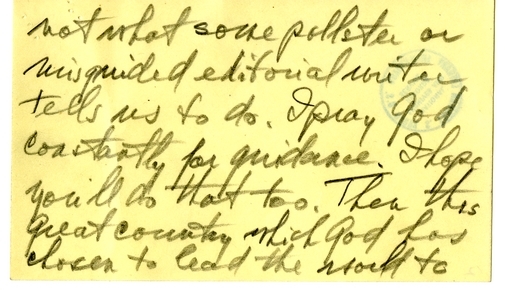 not what some pollster or
misguided editorial writer
tells us to do. I pray God
constantly for guidance. I hope
you'll do that too. Then this
great country which God has
chosen to lead the world to